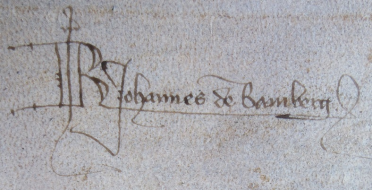 R Johannes de Bamberg